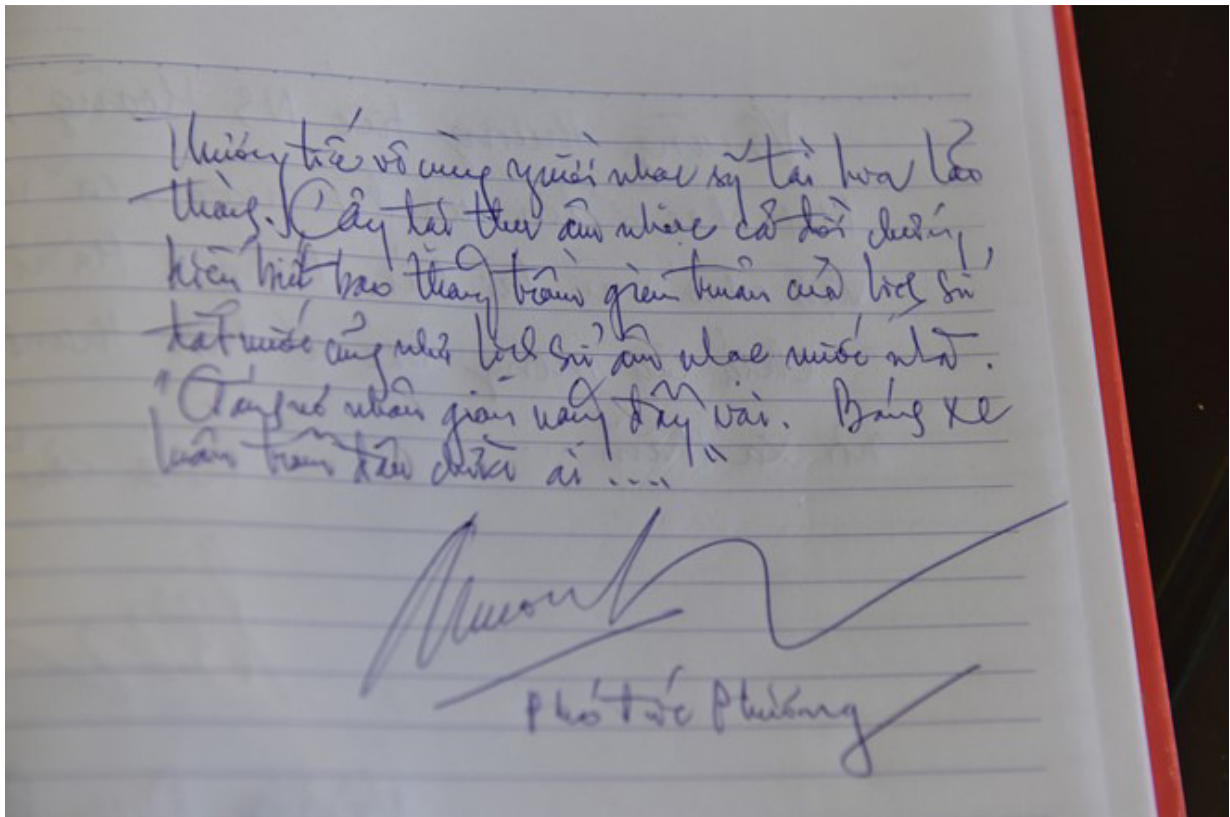 Thương tiếc vô cùng người nhạc sỹ tài hoa lão
thành. Cây đại thụ âm nhạc cả đời chứng
kiến biết bao thăng trầm gian truân của lịch sử
đất nước cũng như lịch sử âm nhạc nước nhà.
nhân gian nặng đầy vai. Bóng xe
trăm đâu ai ....
Phó Đức Phương